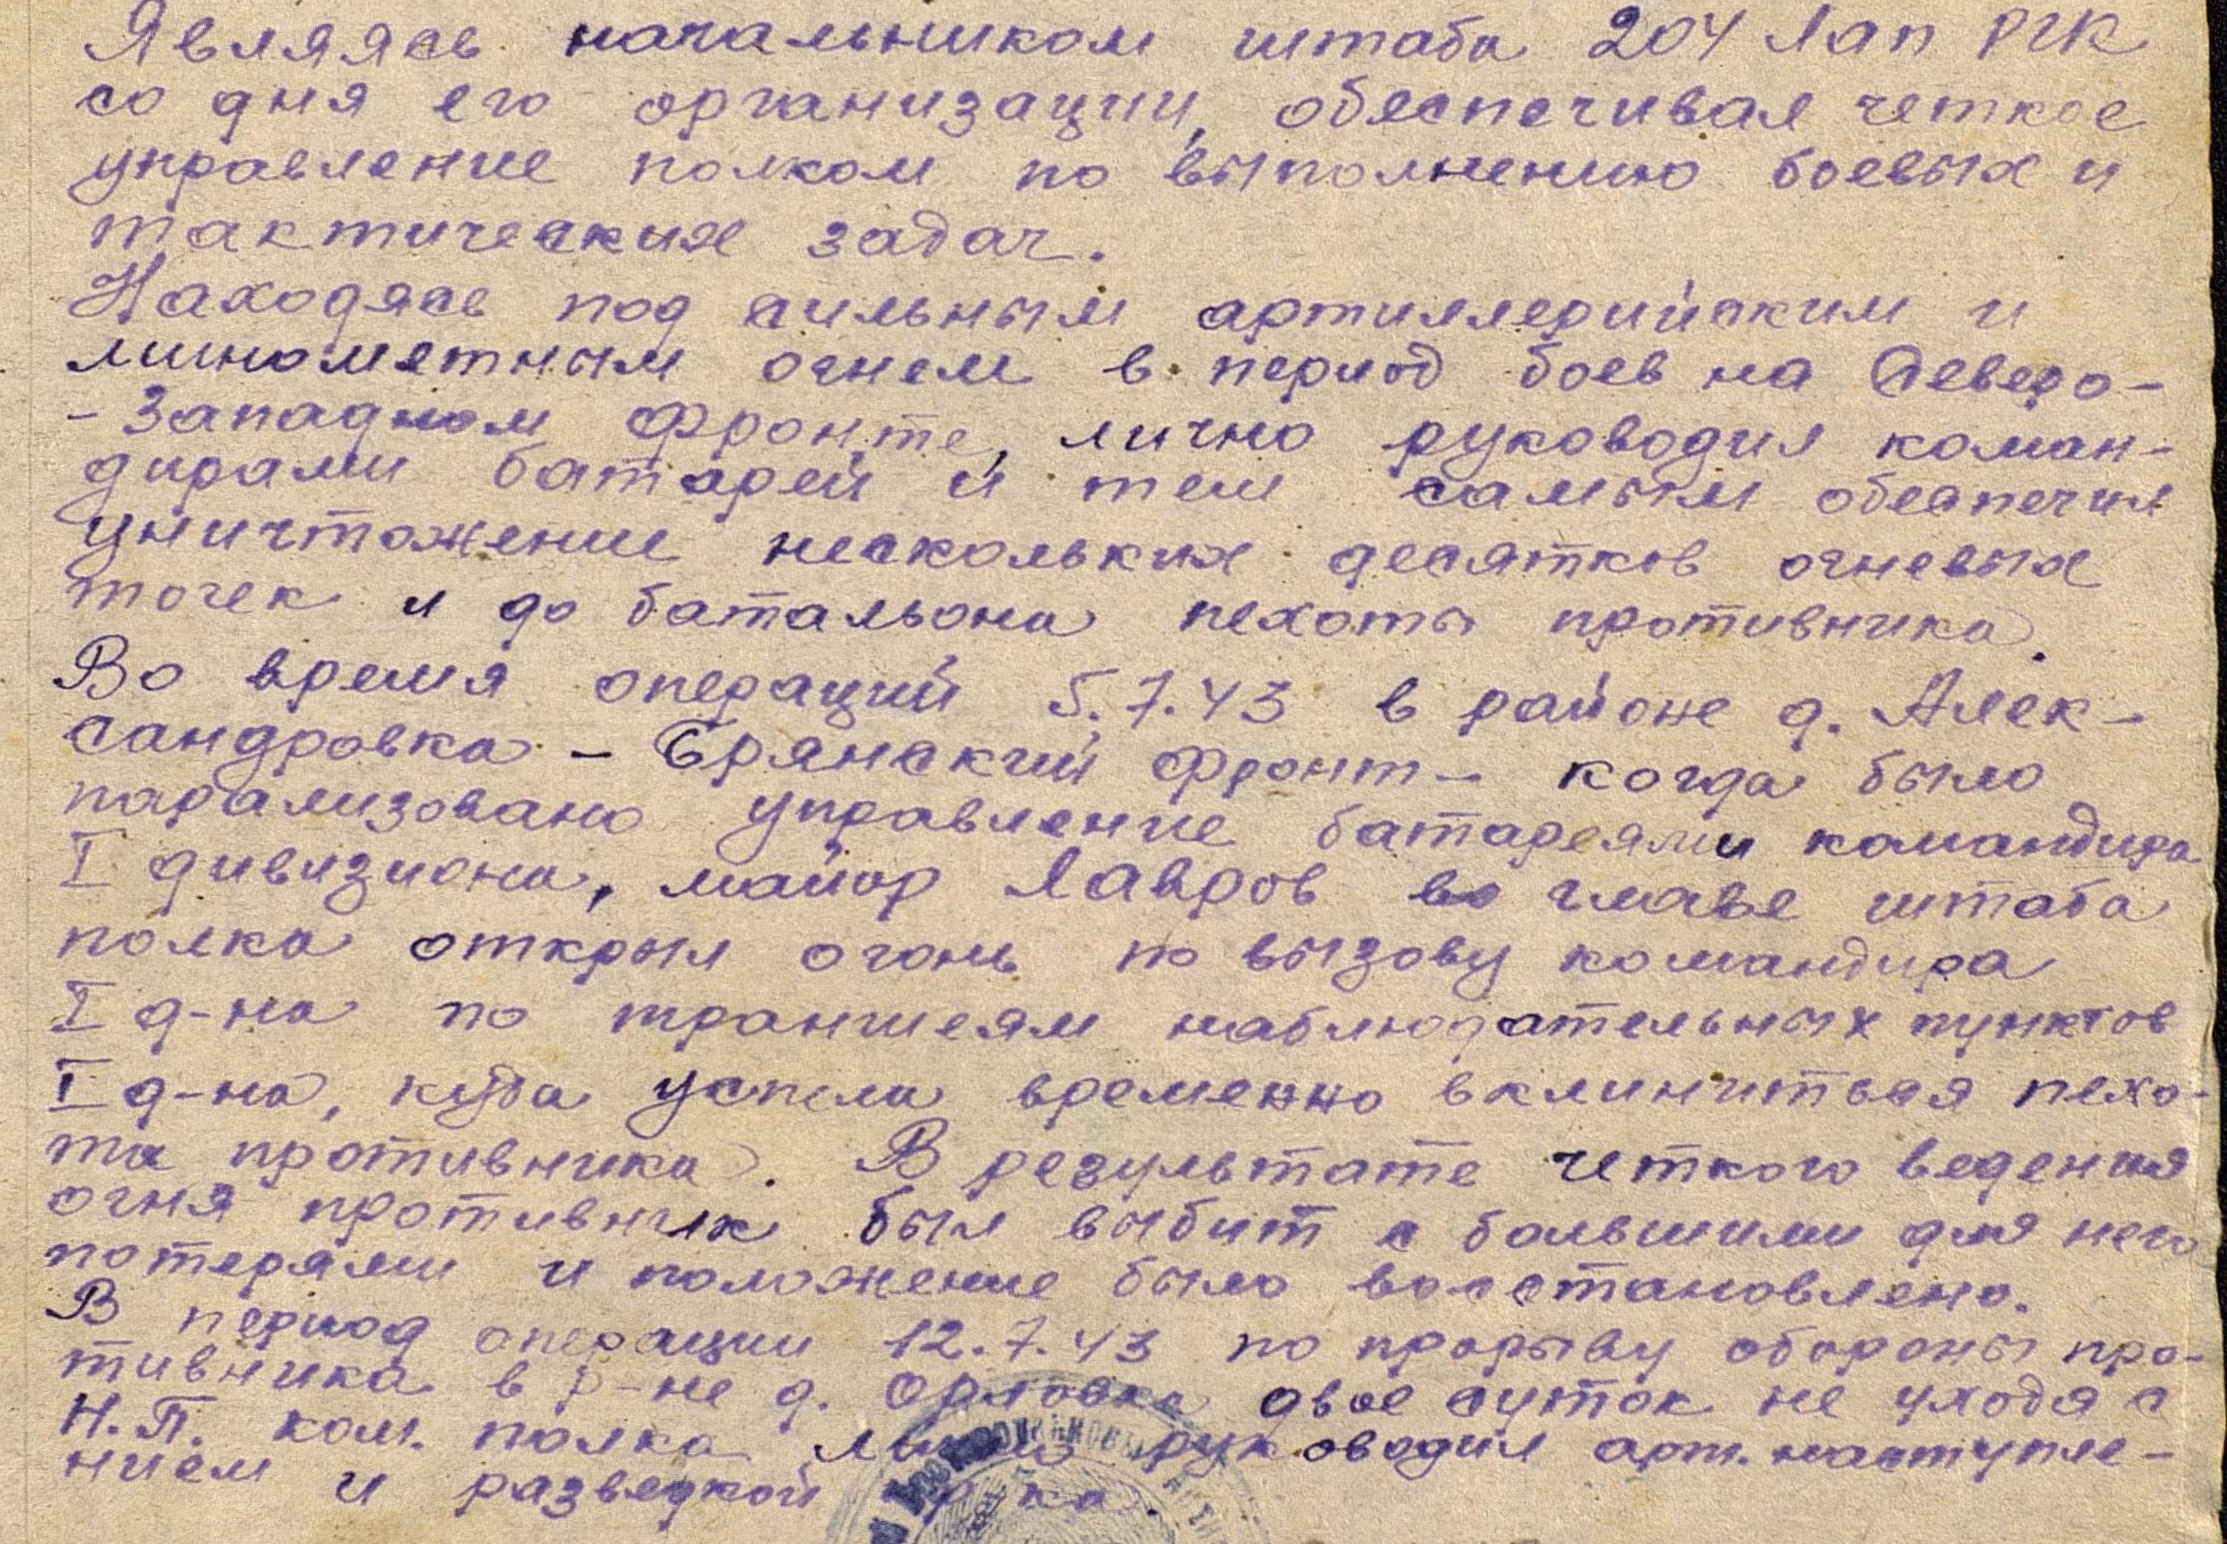 Являясь начальником штаба 204 Лап РГК
со дня его организации, обеспечивал четкое
управление полком по выполнению боевых и
тактических задач.
Находясь под сильным артиллерийским и
минометным огнем в период боев на Северо-
-Западном Фронте, лично руководил коман-
дирами батарей и тем самым обеспечил
уничтожение нескольких десятков огневых
точек и до батальона пехоты противника.
Во время операций 5.7.43 в районе д. Алек-
сандровка - Брянский Фронт - когда было
парализовано управление батареями командира
I дивизиона, майор Лавров во главе штаба
полка открыл огонь по вызову командира
I д-на по траншеям наблюдательных пунктов
I д-на, куда успела временно вклиниться пехо-
та противника. В результате четкого ведения
огня противник был выбит с большими для него
потерями и положение было восстановлено.
В период операции 12.7.43 по прорыву обороны про-
тивника в р-не д. Орловка двое суток не уходя с
Н.П. ком. полка лично руководил арт. наступле-
нием и разведкой